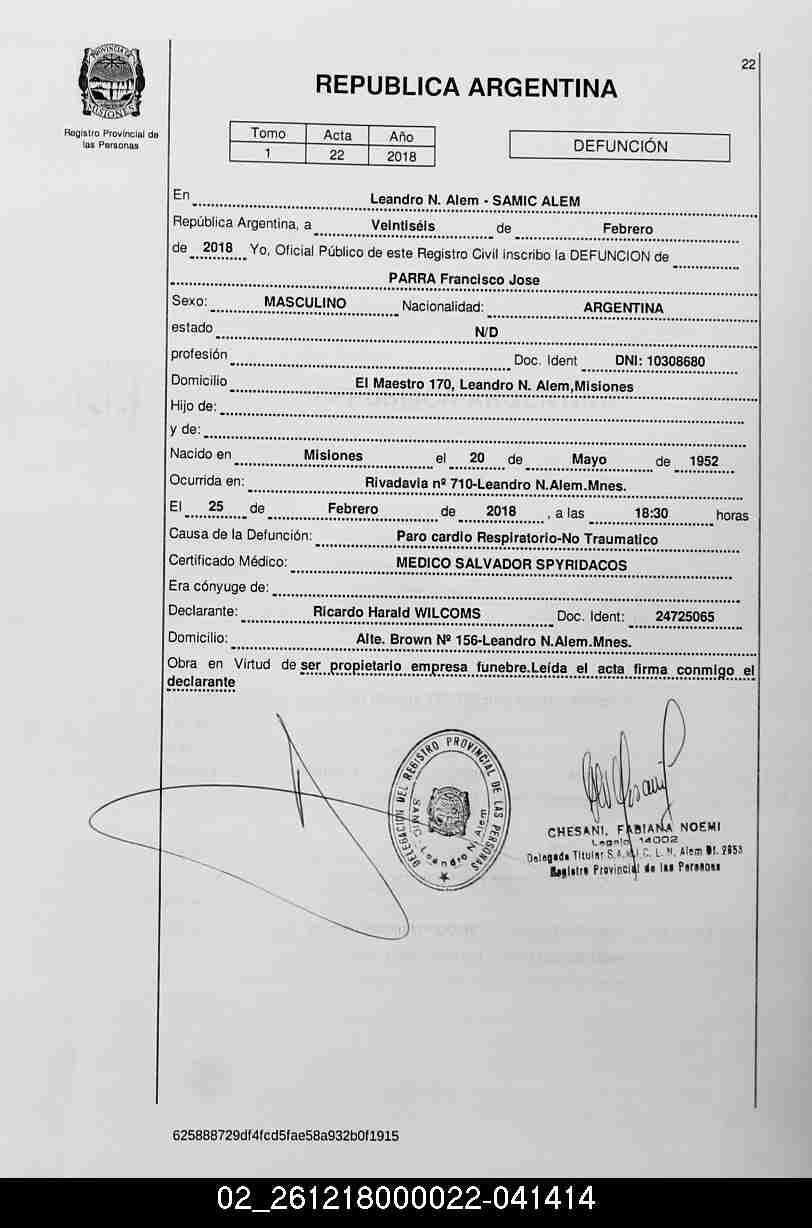 22
PROVINCIA DE
MISIONES
Registro Provincial de
las Personas
REPUBLICA ARGENTINA
Tomo Acta Año
1 22 2018
DEFUNCIÓN
En Leandro N. Alem - SAMIC ALEM
República Argentina, a Veintiséis de Febrero
de 2018 Yo, Oficial Público de este Registro Civil inscribo la DEFUNCION de
PARRA Francisco Jose
Sexo: MASCULINO Nacionalidad: ARGENTINA
estado N/D
profesión Doc. Ident DNI: 10308680
Domicilio El Maestro 170, Leandro N. Alem,Misiones
Hijo de:
y de:
Nacido en Misiones el 20 de Mayo de 1952
Ocurrida en: Rivadavia nº 710-Leandro N.Alem.Mnes.
El 25 de Febrero de 2018 , a las 18:30 horas
Causa de la Defunción: Paro cardio Respiratorio-No Traumatico
Certificado Médico: MEDICO SALVADOR SPYRIDACOS
Era cónyuge de:
Declarante: Ricardo Harald WILCOMS Doc. Ident: 24725065
Domicilio: Alte. Brown Nº 156-Leandro N.Alem.Mnes.
Obra en Virtud de ser propietario empresa funebre.Leída el acta firma conmigo el
declarante
DELEGACION DEL REGISTRO PROVINCIAL DE LAS PERSONAS
SAMIC. Leandro N. Alem
CHESANI, FABIANA NOEMI
Legajo 14002
Delegada Titular S.A.M.I.C. L. N. Alem Of. 2653
Registro Provincial de las Personas
625888729df4fcd5fae58a932b0f1915
02_261218000022-041414